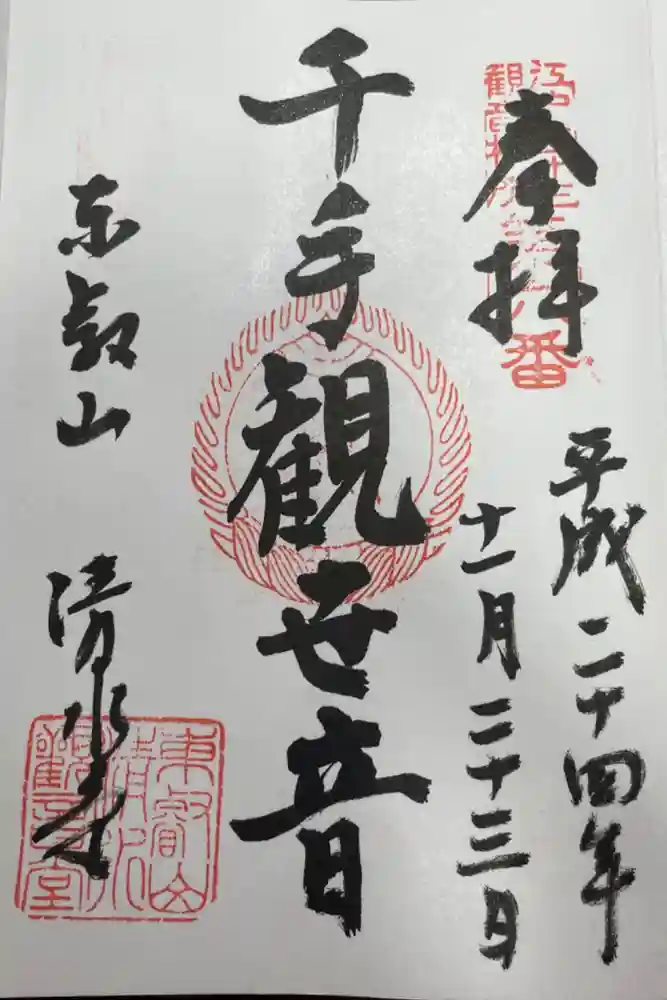 奉拝
江戸三十三
観音札所
番
平成二十四年
十一月二十三日
千手観世音
東叡山
清水堂
東叡山
清水
観音堂